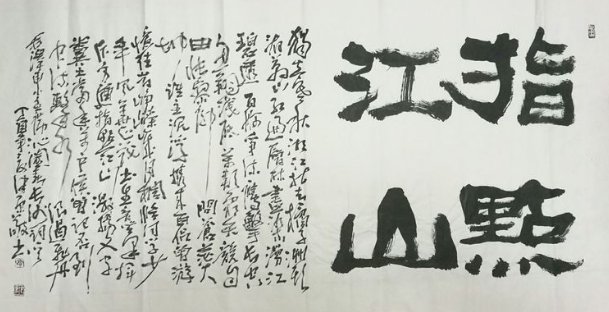 指點
江山
獨立寒秋湘江北去橘子洲頭看
萬山紅遍層林盡染漫江
碧透百舸爭流鷹擊長空
魚翔淺底萬類霜天競自
由悵寥廓問蒼茫大
地誰主沉浮攜來百侶曾游
憶往昔崢嶸歲月稠恰同學少
年風華正茂書生意氣揮
斥方遒指點江山激揚文字
糞土當年萬戶侯曾記否到
中流擊水浪遏飛舟
沁園春長沙詞
丁酉年